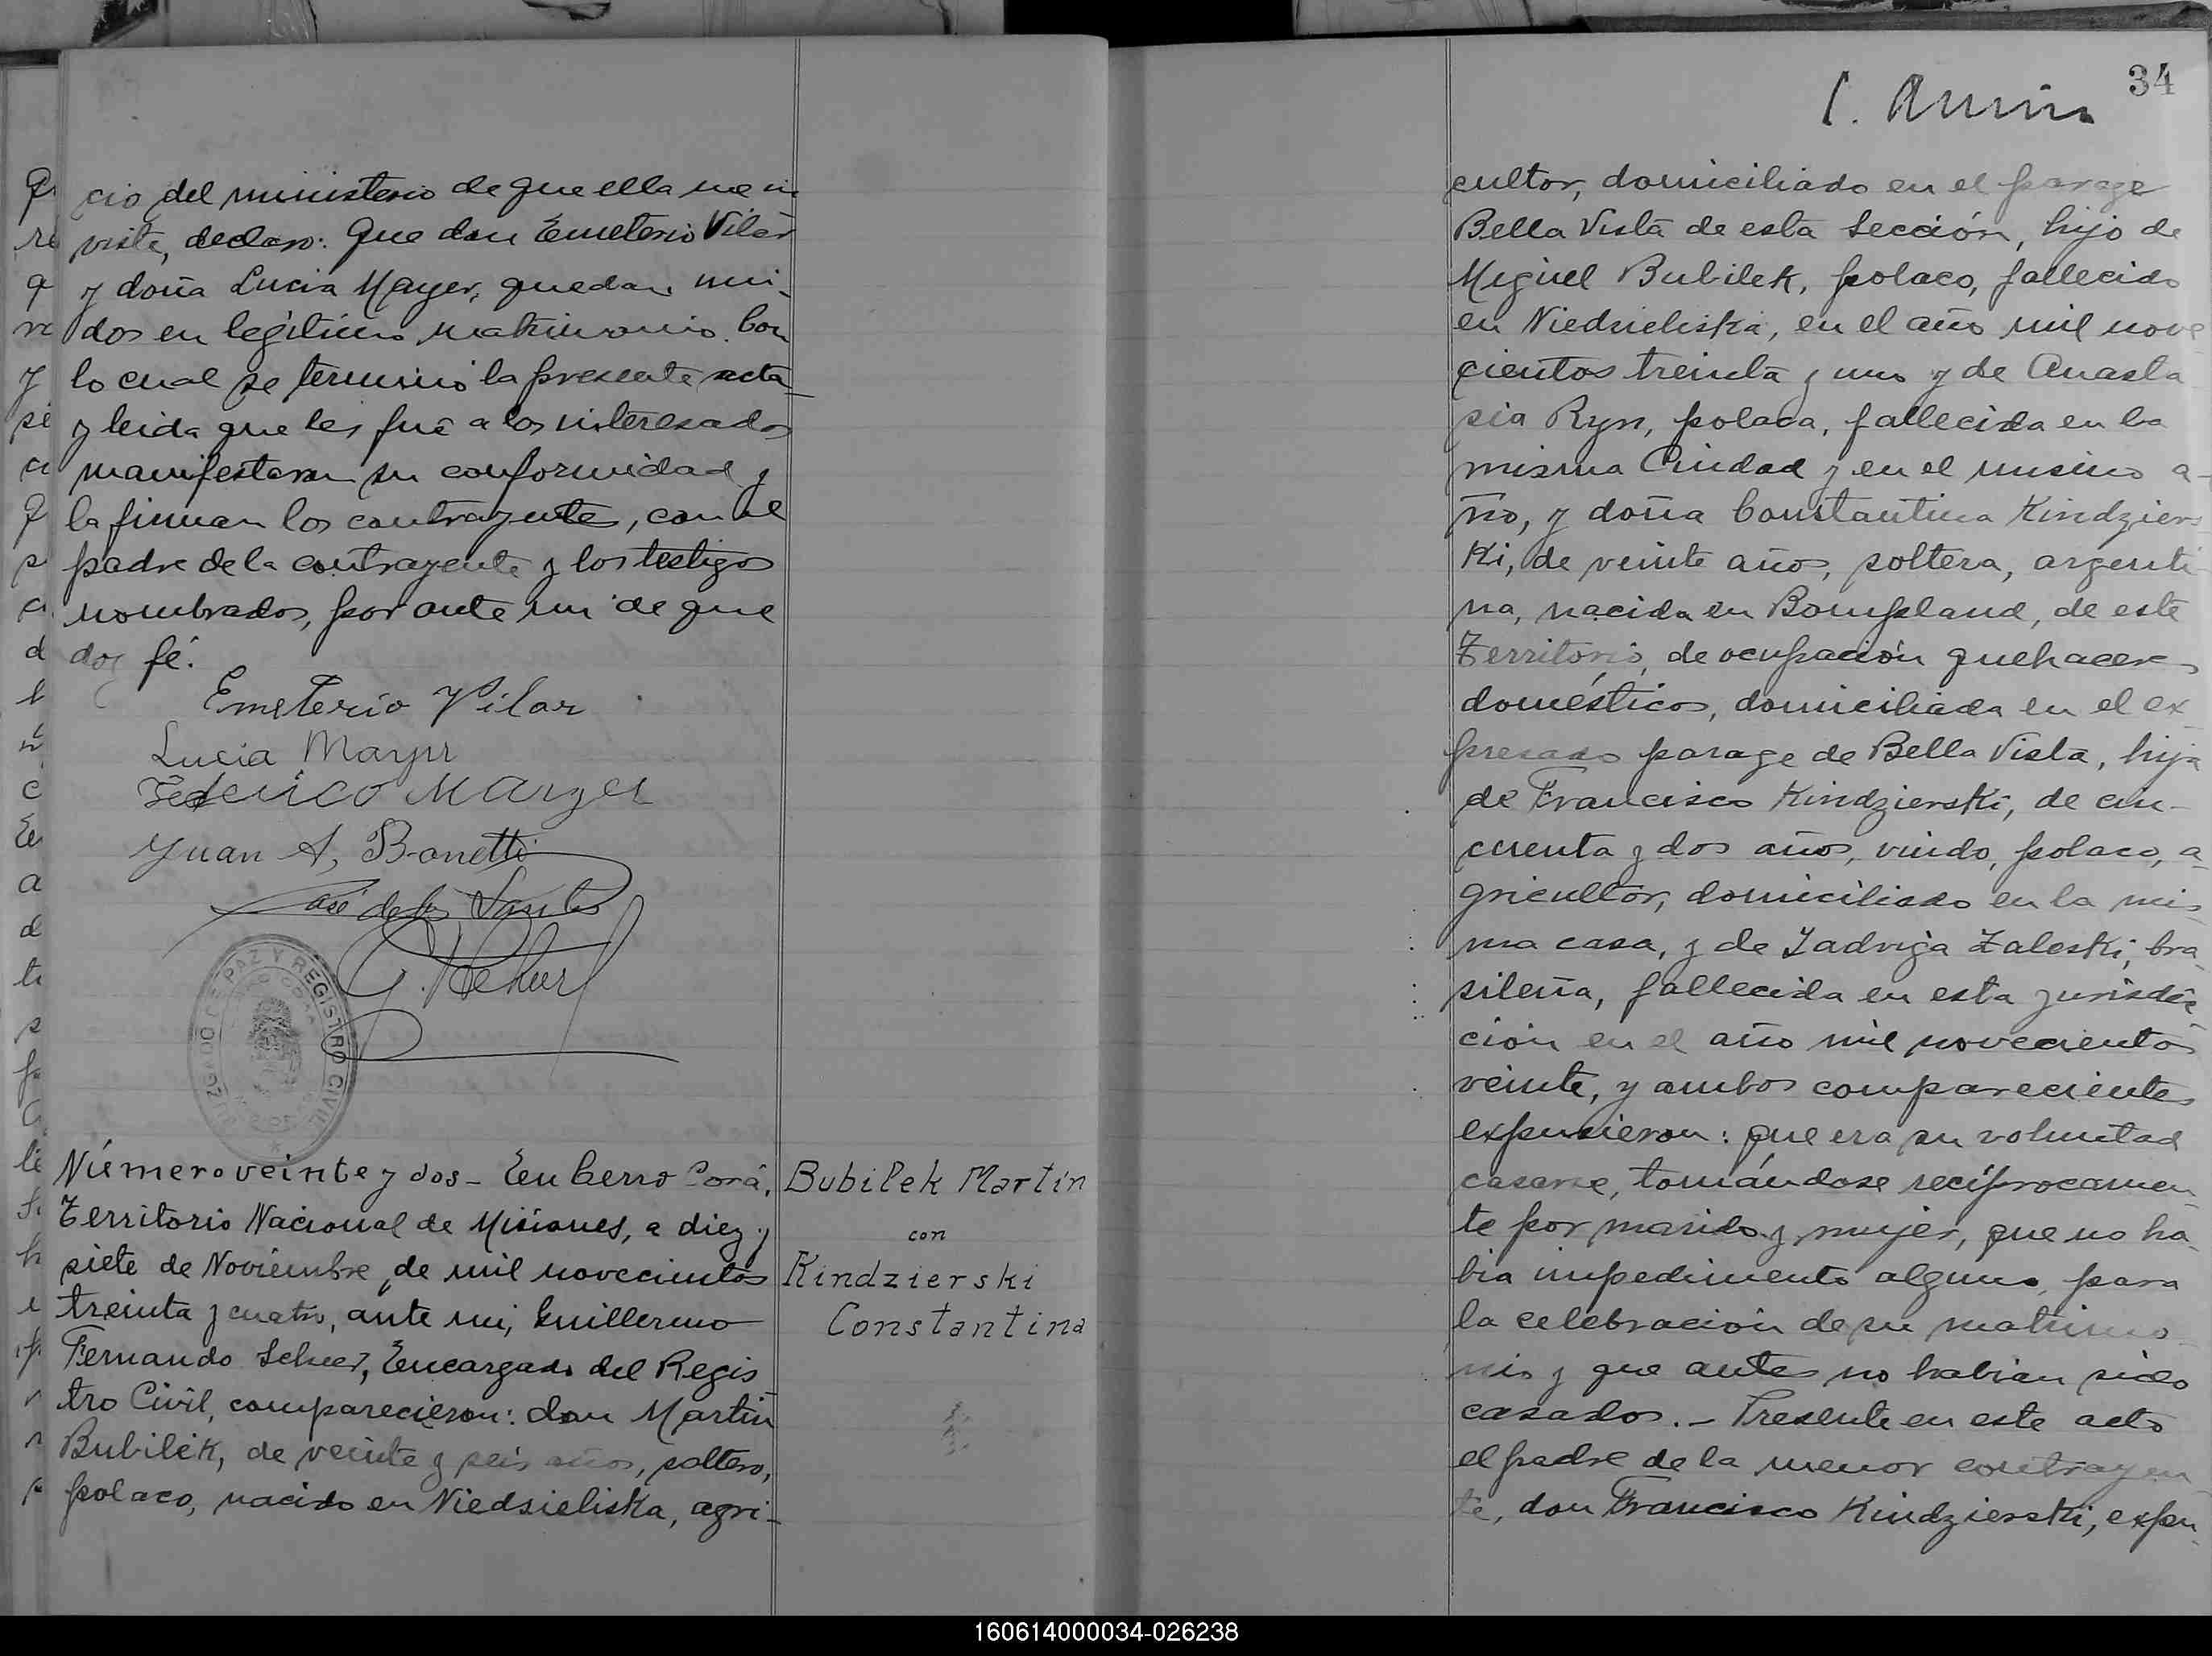 cio del ministerio de que ella me in
viste, declaro: Que don Emeterio Vilar
y doña Lucia Mayer, quedan uni-
dos en legitimo matrimonio. Con
lo cual se terminó la presente acta
y leida que les fué a los interesados
manifestaron su conformidad y
la firman los contrayentes, con el
padre de la contrayente y los testigos
nombrados, por ante mi de que
doy fé.
Emeterio Vilar
Lucia Mayer
Federico Mayer
Juan A, Bonetti
José de los Santos
JUZGADO DE PAZ Y REGISTRO CIVIL
Número veinte y dos - En Cerro Corá,
Territorio Nacional de Misiones, a diez y
siete de Noviembre de mil novecientos
treinta y cuatro, ante mi, Guillermo
Fernando Scheer, Encargado del Regis
tro Civil, comparecieron: don Martin
Bubilek, de veinte y seis años, soltero,
polaco, nacido en Niedsieliska, agri-
Bubilek Martín
con
Kindzierski
Constantina
34
cultor, domiciliado en el parage
Bella Vista de esta Sección, hijo de
Miguel Bubilek, polaco, fallecido
en Niedzieliska, en el año mil nove
cientos treinta y uno y de Anasta
sia Ryn, polaca, fallecida en la
misma Ciudad y en el mismo a-
ño, y doña Constantina Kindziers
ki, de veinte años, soltera, argenti
na, nacida en Bompland, de este
Territorio, de ocupación quehaceres
domésticos, domiciliada en el ex-
presado parage de Bella Vista, hija
de Francisco Kindzierski, de cin-
cuenta y dos años, viudo, polaco, a
gricultor, domiciliado en la mis
ma casa, y de Jadviga Zaleski, bra
sileña, fallecida en esta jurisdic
ción en el año mil novecientos
veinte, y ambos comparecientes
expusieron: que era su voluntad
casarse, tomándose recíprocamen
te por marido y mujer, que no ha-
bia impedimento alguno, para
la celebración de su matrimo
nio y que antes no habian sido
casados. - Presente en este acto
el padre de la menor contrayen
te, don Francisco Kindzierski, expu
160614000034-026238